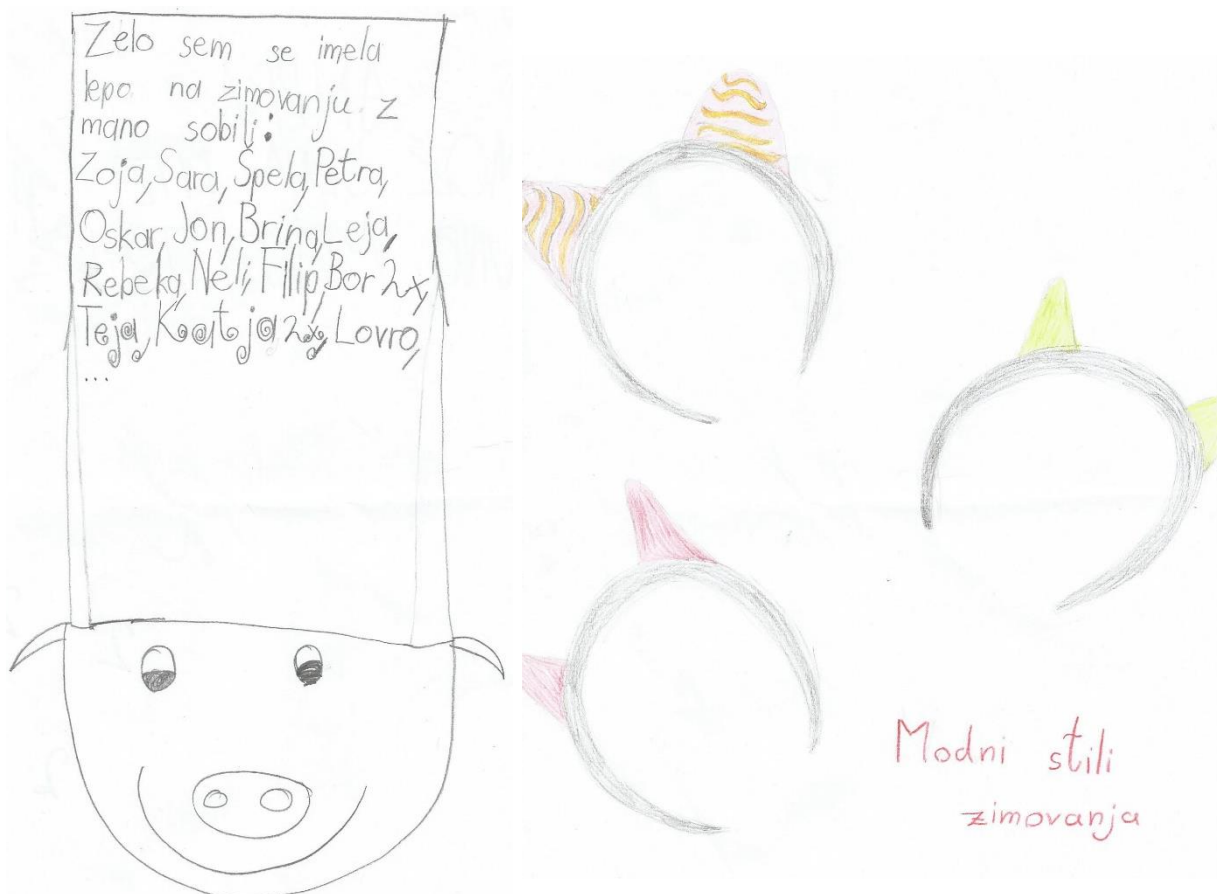 Zelo sem se imela
lepo na zimovanju z
mano sobili:
Zoja, Sara, Špela, Petra,
Oskar, Jon, Brina, Leja,
Rebeka, Neli, Filip, Bor 2x,
Teja, Katja 2x, Lovro,
...
Modni stili
zimovanja